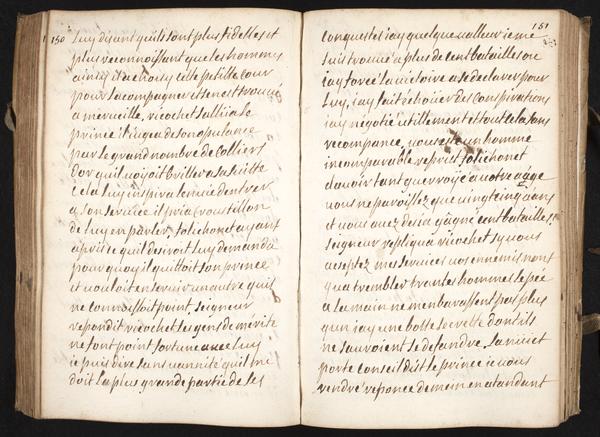 150
luy disent quils sont plus fidelles et
plus reconnoissant que les hommes
ainsy il a choisy cette petitte cour
pour lacompagner et sen est trouué
a merueille, ricochet salüia le
prince il iugea de son opulance
par le grand nombre de Colliers
dor quil uoioit briller a sa suitte
cela luy inspira lenuie dentrer
a son seruice il pria froustillon
de luy en parler, folichonet ayant
apris ce quil desiroit luy demanda
pourquoy il quittoit son prince
et uouloit en seruir un autre quil
ne connoissoit point, seigneur
repondit ricochet les gens de merite
ne font point fortune auec luy
ie puis dire sans uannité quil me
doit la plus grande partie de ses
151
conquestes iay quelque ualleur ie me
suis trouué a plus de cent batailles ou
iay forcé la uictoire a se declarer pour
luy, iay fait échoüer des conspirations
iay négotié utillement et tout cela sans
recompance, uous estes un homme
incomparable reprist folichonet
dauoir tant guerroyé a uotre age
uous ne paroissez que uingt cinq ans
et uous auez desia gagne cent batailles,
seigneur repliqua ricochet sy uous
aceptez mes seruices uos ennemis nont
qua trembler trente hommes lepée
a la main ne menbarassent pas plus
qun iay une botte secrette dont ils
ne sauroient se defandre, la nuict
porte conseil dit le prince ie uous
rendre reponce demain en atandant